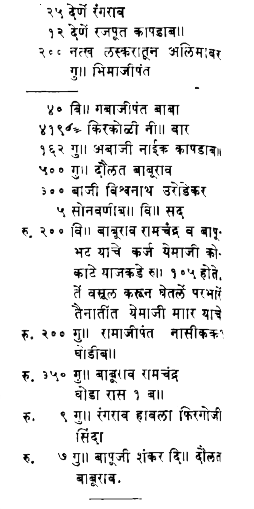 २५ देणें रंगराव
१२ देणें रजपूत कापडाब॥
२०० नत्ख लस्करातून अलिमाबर
गु॥ भिमाजीपंत
४० वि॥ गबाजीपंत बाबा
किरकोळी नी॥ बार
१६२ गु॥ अबाजी नाईक कापडाब॥
५०० गु॥ दौलत बाबूराव
३०० बाजी विश्वनाथ उरोडेकर
५ सोनवणीब॥ वि॥ सद
रु. २०० वि॥ बाबूराव रामचंद्र व बापू-
भट याचे कर्ज येमाजी को-
काटे याजकडे रु॥ १०५ होते.
तें वसूल करून घेतलें परभारें
तैनातींत येमाजी मा॥र याचे
रु. २०० गु॥ रामाजीपंत नासीककर
घोडीब॥
रु. ३५० गु॥ बाबूराव रामचंद्र
घोडा रास १ ब॥
रु. ९ गु॥ रंगराव हावला फिरगोजी
सिंदा
रु. ७ गु॥ बापूजी शंकर दि॥ दौलत
बाबूराव.